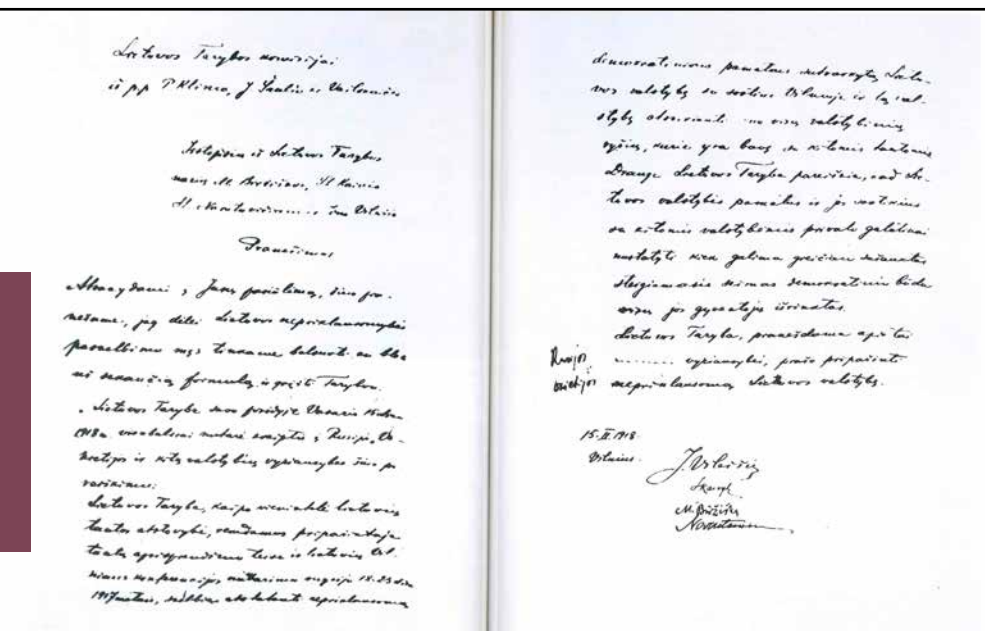 Lietuvos Tarybos komisijai
iš p.p. P. Klimo, J. Šaulio ir Vailokaičio
Išstojusių iš Lietuvos Tarybos
narių M. Biržiškos, St. Kairio
St. Narutavičiaus ir Jono Vileišio
Pranešimas
Atsakydami į Jūsų pasiūlymą, šiuo pra-
nešame, jog dėlei Lietuvos nepriklausomybės
paskelbimo mes tinkame balsuoti en bloc
už sekančią formulą ir grįžti Tarybon.
„Lietuvos Taryba savo posėdyje Vasario 15 d.
1918 m. vienbalsiai nutarė kreiptis į Rusijos, Vo-
kietijos ir kitų valstybių vyriausybes šiuo pa
reiškimu:
Lietuvos Taryba, kaipo vienintelė lietuvių
tautos atstovybė, remdamos pripažintąja
tautų apsisprendimo teise ir lietuvių Vil-
niaus konferencijos nutarimu rugsėjo 18-23 d.
1917 metais, skelbia atstatanti nepriklausomą
demokratiniais pamatais sutvarkytą Lietu-
vos valstybę su sostine Vilniuje ir tą val-
stybę atskirianti nuo visų valstybinių
ryšių, kurie yra buvę su kitomis tautomis
Drauge Lietuvos Taryba pareiškia, kad Lie-
tuvos valstybės pamatus ir jos santikius
su kitomis valstybėmis privalo galutinai
nustatyti kiek galima greičiau sušauktas
steigiamasis seimas demokratiniu būdu
visų jos gyventojų išrinktas.
Lietuvos Taryba, pranešdama apie tai
Rusijos
Vokietijos
vyriausybei, prašo pripažinti
nepriklausomą Lietuvos valstybę.
15. II. 1918
Vilnius.
J. Vileišis
SKairys
M. Biržiška
Narutavičius